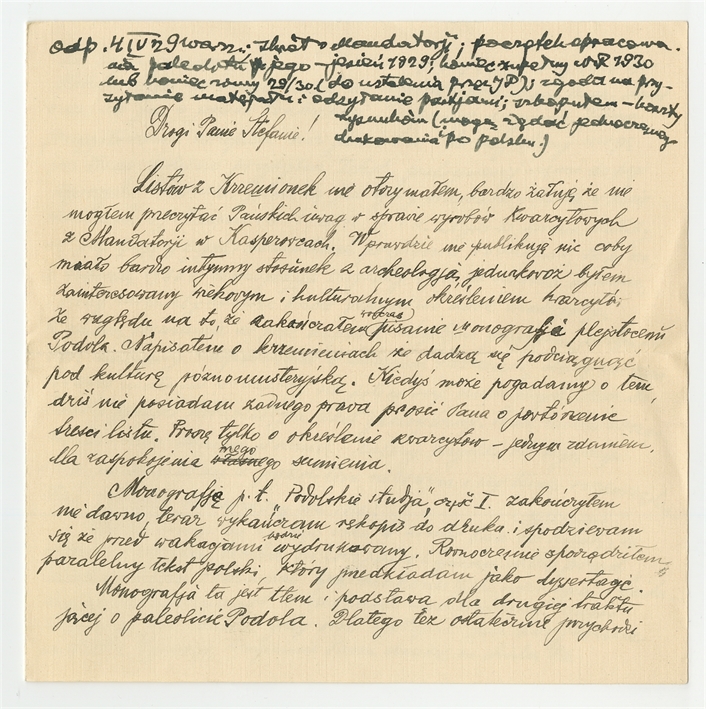 odp. 4 IV 29 Warsz.: zwrot z Mandatorji; początek opracowa.
nia paleolitu jego – jesień 1929; koniec zupełny w r. 1930
lub koniec zimy 29/30 (do ustalenia przez JP); zgoda na prze-
sytanie materjału i odsyłanie partjami;
rysunków (mogą żądać jednoczesnego
drukowania po polsku.)
Drogi Panie Stefanie!
Listów z Krzemionek nie otrzymałem, bardzo żałuję że nie
mogłem przeczytać Pańskich uwag w sprawie wyrobów kwarcytowych
z Mandatorji w Kasperowcach. Wprawdzie nie publikuję nic coby
miało bardzo intymny stosunek z archeologją, jednakowoż byłem
zainteresowany wiekowym i kulturalnym określeniem kwarcytów
ze względu na to, że zakończałem wówczas pisanie monografji plejstocenu
Podola. Napisałem o krzemieniach że dadzą się podciągnąć
pod kulturę późnomusteryjską. Kiedyś może pogadamy o tem,
dziś nie posiadam żadnego prawa prosić Pana o powtórzenie
treści listu. Proszę tylko o określenie kwarcytów – jednym zdaniem,
dla zaspokojenia własnego mego sumienia.
Monografję p. t. "Podolskie studja", część I. zakończyłem
niedawno, teraz wykańczam rękopis do druku i spodziewam
się że przed wakacjami będzie wydrukowany. Równocześnie sporządziłem
paralelny tekst polski, który przedkładam jako dyssertację.
Monografja ta jest tłem i podstawą dla drugiej traktu
jącej o paleolicie Podola. Dlatego też ostatecznie przychodzi